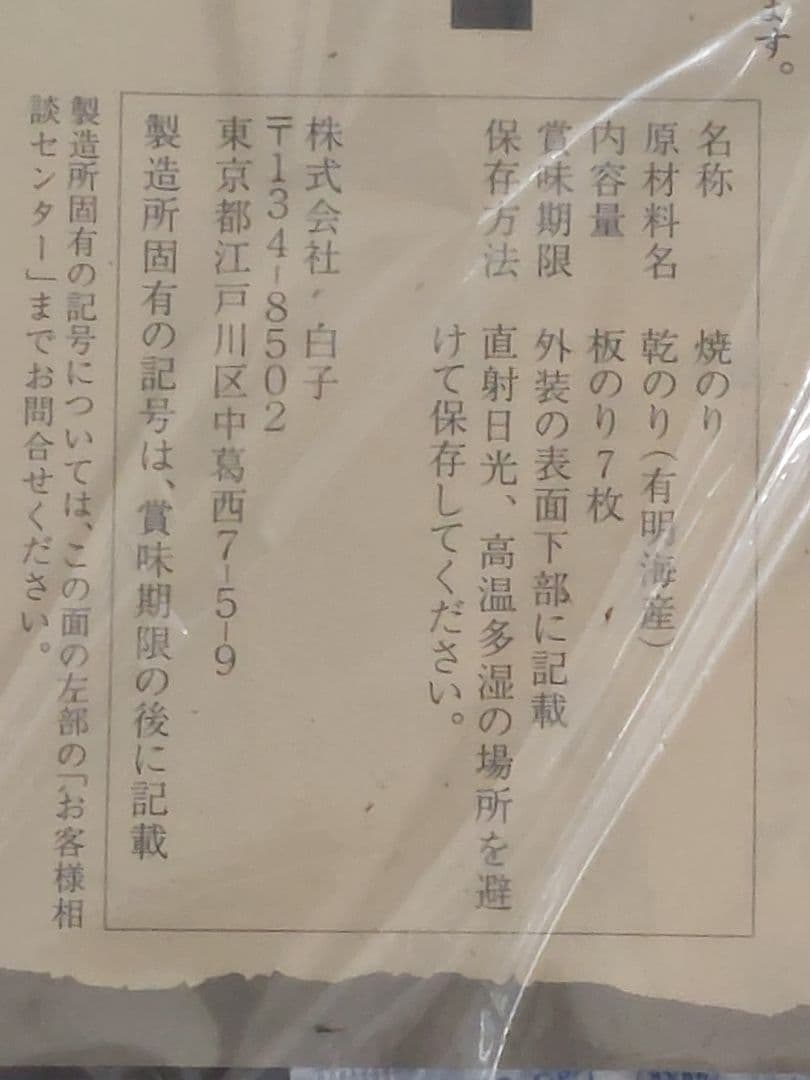 ます。
名称　焼のり
原材料名　乾のり（有明海産）
内容量　板のり７枚
賞味期限　外装の表面下部に記載
保存方法　直射日光、高温多湿の場所を避
けて保存してください。
株式会社　白子
〒134-8502
東京都江戸川区中葛西7-5-9
製造所固有の記号は、賞味期限の後に記載
製造所固有の記号については、この面の左部の「お客様相
談センター」までお問合せください。